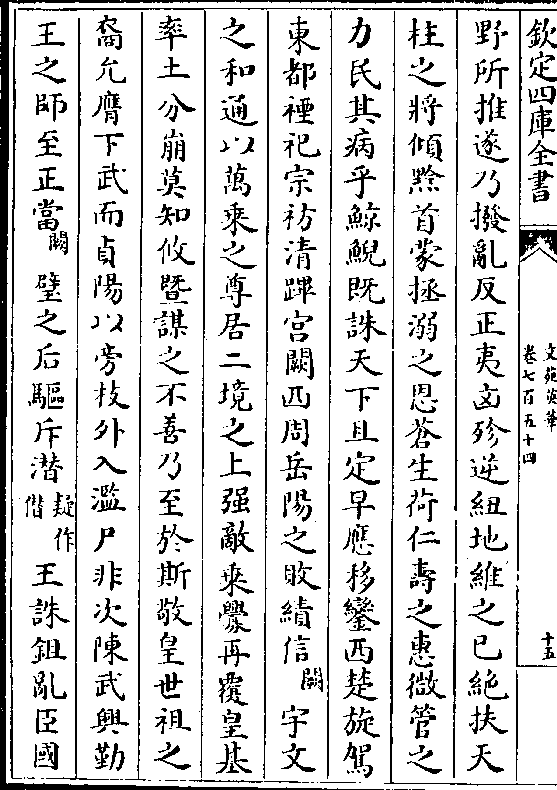 欽定四庫全書
文苑英華
卷七百五十四
十五
野所推遂乃撥亂反正夷凶殄逆紐地維之已絶扶天
柱之將傾黔首蒙拯溺之恩蒼生荷仁壽之惠微管之
力民其病乎鯨鯢既誅天下且定早應移鑾西楚旋駕
東都禋祀宗祊清蹕宮闕西周岳陽之敗績信闕宇文
之和通以萬乘之尊居二境之上强敵乘釁再覆皇基
率土分崩莫知攸暨謀之不善乃至於斯敬皇世祖之
裔允膺下武而貞陽以旁枝外入濫尸非次陳武興勤
王之師至正當闕璧之后驅斥潛疑作僭王誅鉏亂臣國